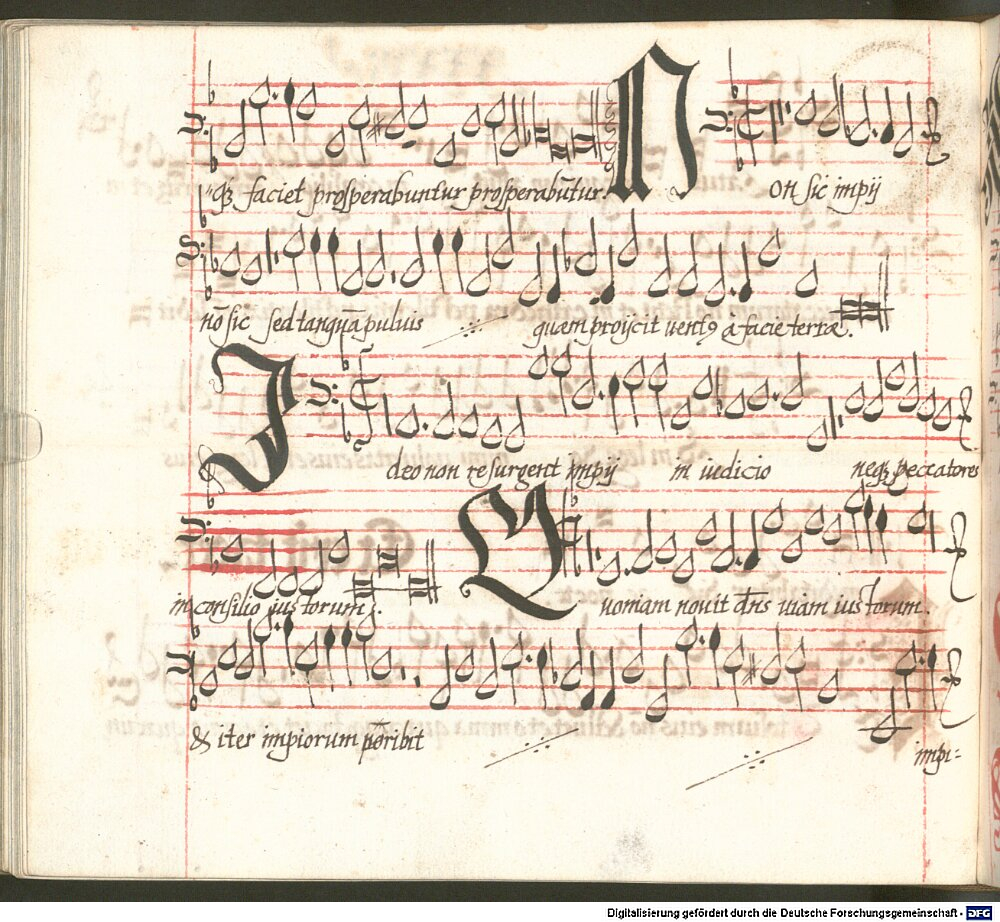 q₃ faciet prosperabuntur prosperabūtur. Non sic impij
nō sic sed tanquā puluis ·//· quam proijcit vent⁹ a facie terræ.
Ideo non resurgent impij in iudicio neq₃ peccatores
in consilio iustorum. Quoniam nouit dn̄s uiam iustorum.
& iter impiorum peribit ·//· ·//· impi-
Digitalisierung gefördert durch die Deutsche Forschungsgemeinschaft - DFG